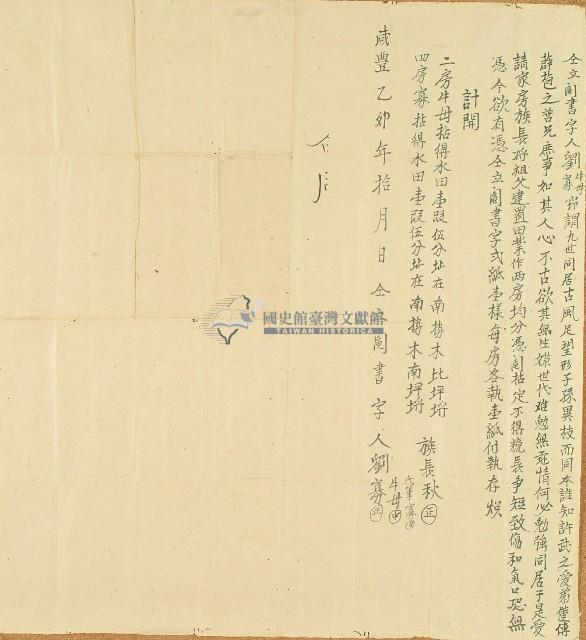 仝立鬮書字人劉牛母寡等謂九世同居古風足望形子孫異枝而同本誰知許武之愛弟僅傳
薛苞之善兄庶事如其人心不古欲其無生嫌世代难勉無乖情何必勉強同居于是爰
請家房族長将祖父建置田業作两房均分憑鬮拈定不得競長爭短致傷和氣口恐無
憑今欲有憑仝立鬮書字弍紙壹樣每房各執壹紙付執存炤
計開
二房牛母拈得水田壹段伍分址在南勢木北坪埒
四房寡拈得水田壹段伍分址在南勢木南坪埒
族長秋 正
代筆寡
咸豐乙卯年拾月日仝立鬮書字人劉牛母寡正
國史館臺灣文獻館
TAIWAN HISTORICA